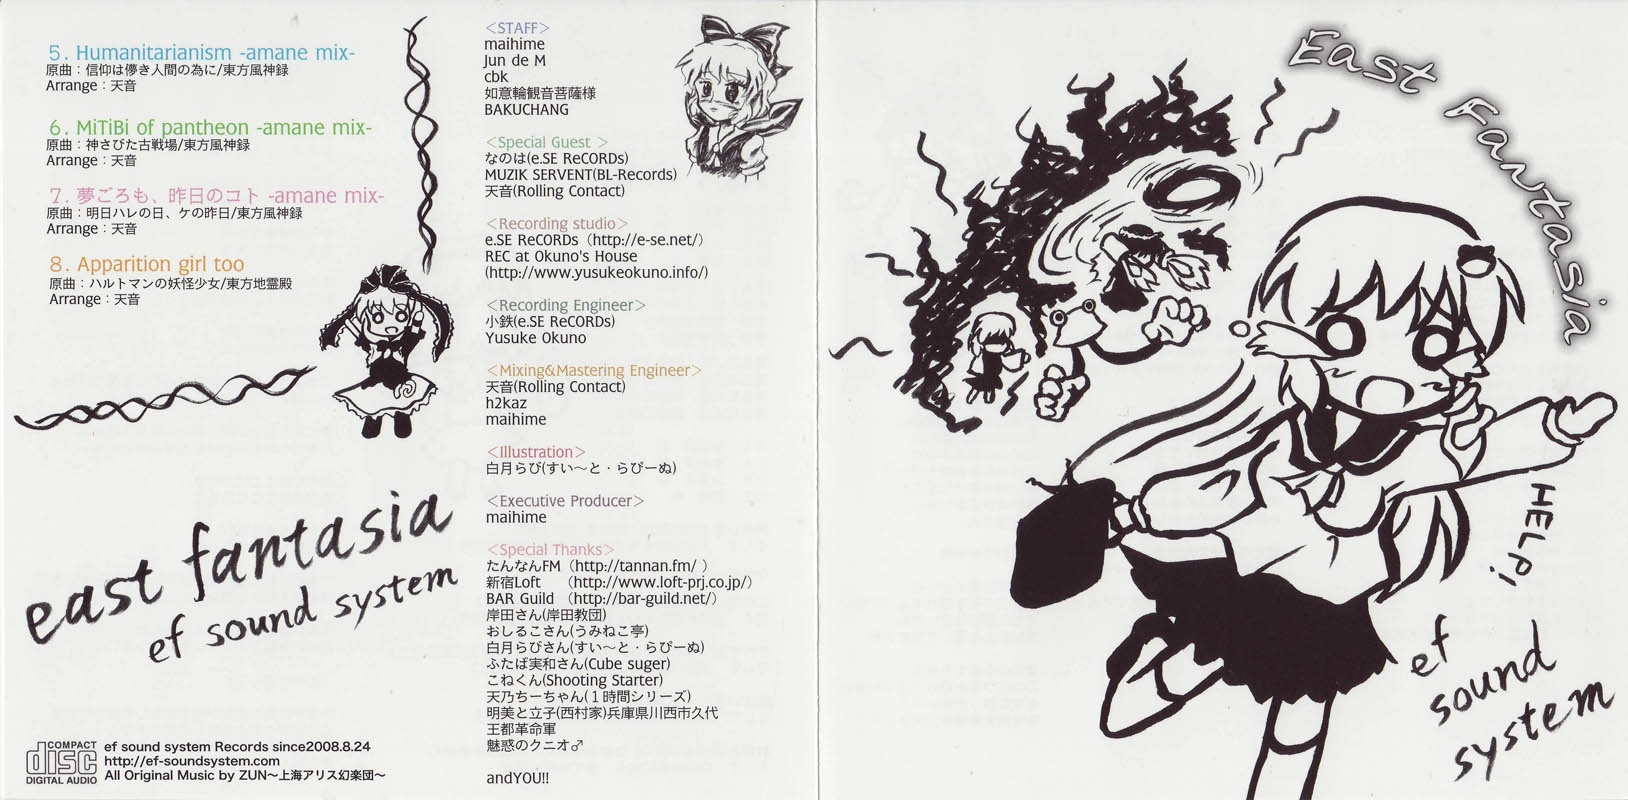 5. Humanitarianism -amane mix-
原曲：信仰は儚き人間の為に/東方風神録
Arrange：天音
6. MiTiBi of pantheon -amane mix-
原曲：神さびた古戦場/東方風神録
Arrange：天音
7. 夢ごろも、昨日のコト -amane mix-
原曲：明日ハレの日、ケの昨日/東方風神録
Arrange：天音
8. Apparition girl too
原曲：ハルトマンの妖怪少女/東方地霊殿
Arrange：天音
east fantasia
ef sound system
COMPACT
disc
DIGITAL AUDIO
ef sound system Records since2008.8.24
http://ef-soundsystem.com
All Original Music by ZUN～上海アリス幻楽団～
＜STAFF＞
maihime
Jun de M
cbk
如意輪観音菩薩様
BAKUCHANG
＜Special Guest ＞
なのは(e.SE ReCORDs)
MUZIK SERVENT(BL-Records)
天音(Rolling Contact)
＜Recording studio＞
e.SE ReCORDs（http://e-se.net/）
REC at Okuno's House
(http://www.yusukeokuno.info/)
＜Recording Engineer＞
小鉄(e.SE ReCORDs)
Yusuke Okuno
＜Mixing&Mastering Engineer＞
天音(Rolling Contact)
h2kaz
maihime
＜Illustration＞
白月らび(すい～と・らびーぬ)
＜Executive Producer＞
maihime
＜Special Thanks＞
たんなんFM（http://tannan.fm/ ）
新宿Loft　（http://www.loft-prj.co.jp/）
BAR Guild （http://bar-guild.net/）
岸田さん(岸田教団)
おしるこさん(うみねこ亭)
白月らびさん(すい～と・らびーぬ)
ふたば実和さん(Cube suger)
こねくん(Shooting Starter)
天乃ちーちゃん(１時間シリーズ)
明美と立子(西村家)兵庫県川西市久代
王都革命軍
魅惑のクニオ♂
andYOU!!
East Fantasia
HELP!
ef
sound
system